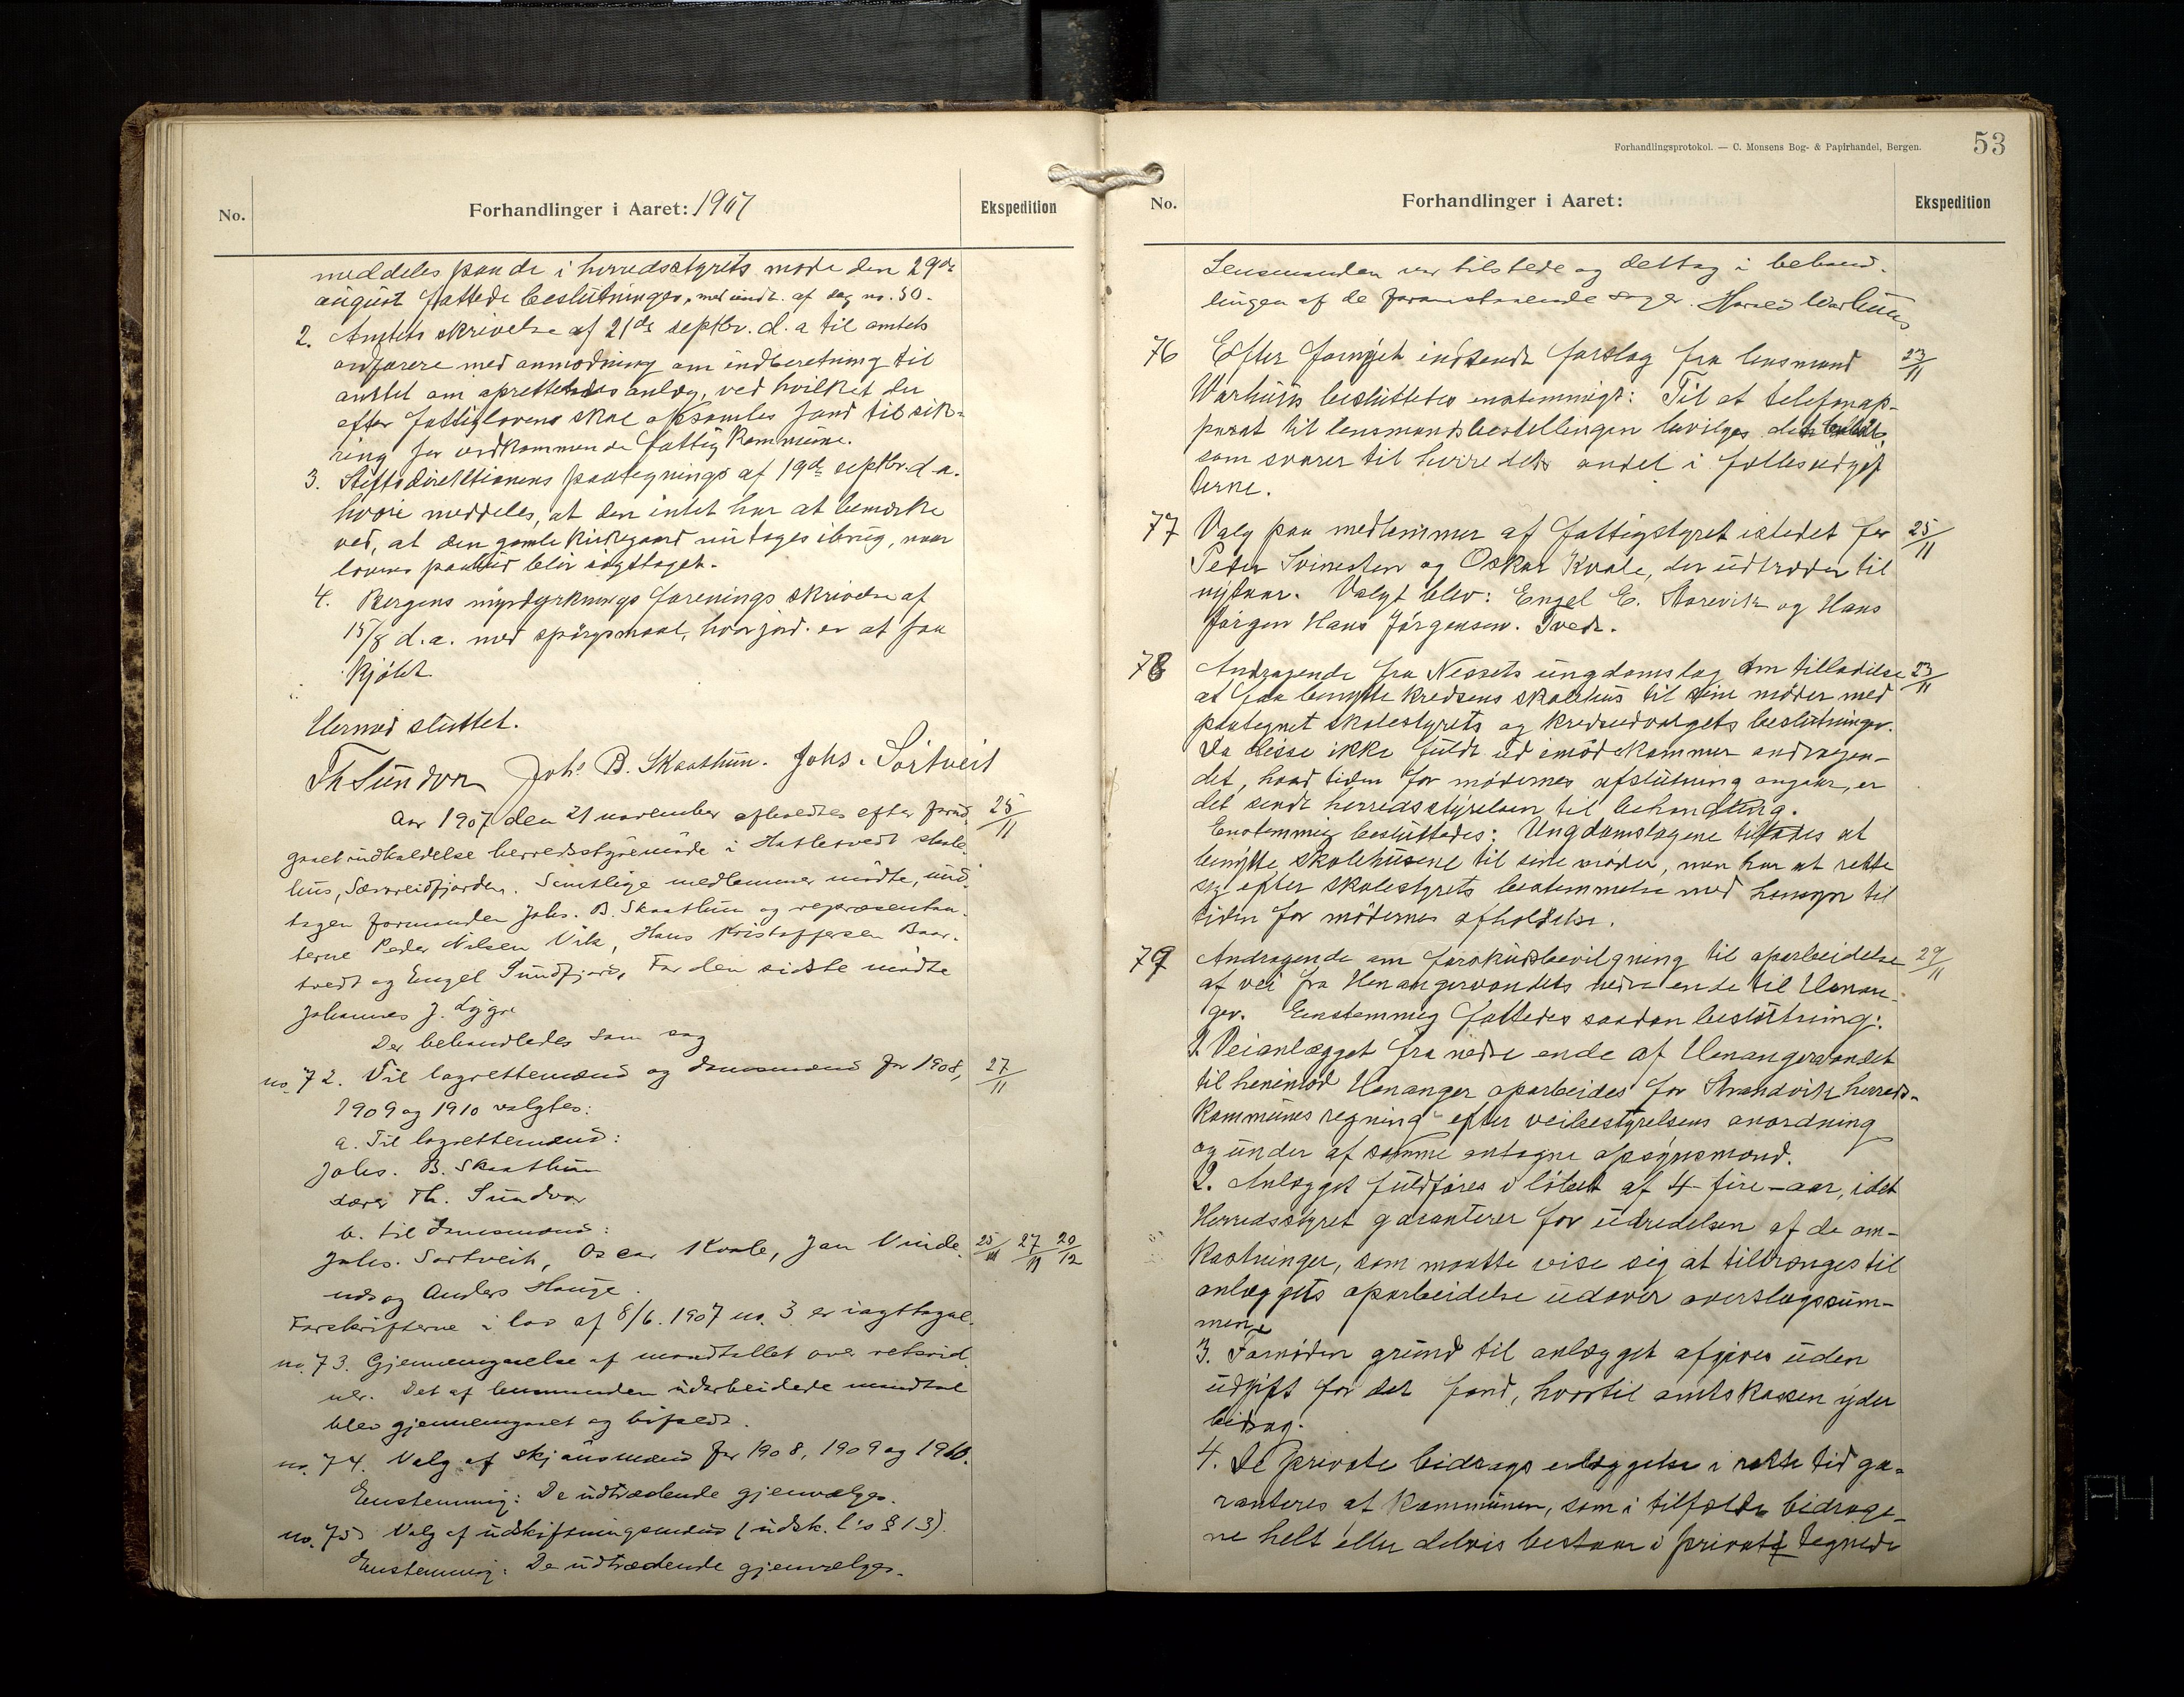 No.
Forhandlinger i Aaret: 1907
Ekspedition
meddeles paa de i herredsstyrets møde den 29de
august fattede beslutninger, med undt. af sag no. 50.
2. Amtets skrivelse af 21de septbr. d. a til amtets
ordførere med anmodning om indberetning til
amtet om oprettelse anlæg, ved hvilket der
efter fattiglovens skal opsamles fond til sik-
ring for vedkommende fattigkommune.
3. Stiftsdirektionens paategnings af 19de septbr. d. a.
hvori meddeles, at den intet har at bemærke
ved, at den gamle kirkegaard nu tages i brug, naar
lovens paabud blir iagttaget.
4. Bergens myrdyrknings forenings skrivelse af
15/8 d. a. med spørgsmaal, hvor jord er at faa
kjøbt.
Hermed sluttet.
Th Sundvor Johs B. Skaathun. Johs. Sørtveit
Aar 1907 den 21 november afholdtes efter forud-
gaaet indkaldelse herredsstyremøde i Hatletvedt skole-
hus, Sævareidfjorden. Samtlige medlemmer mødte, und-
tagen formanden Johs. B. Skaathun og repræsentan-
terne Peder Nilsen Vik, Hans Kristoffersen Baar-
tvedt og Engel Sundfjord. For den sidste mødte
Johannes J. Lygre
25/11
Der behandledes som sag
no. 72. Til lagrettemænd og domsmænd for 1908,
1909 og 1910 valgtes:
27/11
a. Til lagrettemænd:
Johs. B. Skaathun
lærer Th. Sundvor
b. til domsmænd:
Johs. Sørtveit, Oscar Kvale, Jan Vinde-
nes og Anders Hauge.
25/11 27/11 20/12
Forskrifterne i lov af 8/6. 1907 no. 3 er iagttaget.
no. 73. Gjennemgaaelse af mandtallet over retsvid-
ner. Det af lensmanden udarbeidede mandtal
blev gjennemgaaet og bifaldt.
no. 74. Valg af skjønsmænd for 1908, 1909 og 1910.
Enstemmig: De udtrædende gjenvælges.
no. 75 Valg af udskiftningsmænd (udsk. l's § 13).
Enstemmig: De udtrædende gjenvælges.
Forhandlingsprotokol. — C. Monsens Bog- & Papirhandel, Bergen.
53
No.
Forhandlinger i Aaret:
Ekspedition
Lensmanden var tilstede og deltog i behand-
lingen af de foranstaaende sager. Harald Warhuus
76 Efter fornyet indsendt forslag fra lensmand 23/11
Warhuus besluttedes enstemmigt: Til et telefonap-
parat til lensmandsbestillingen bevilges det beløb,
som svarer til herredets andel i fællesudgif
terne.
77 Valg paa medlemmer af fattigstyret istedet for 25/11
Peder Svinesten og Oskar Kvale, der udtræder til
nytaar. Valgt blev: Engel E. Storevik og Hans
Jørgen Hans Jørgensen. Tvedt.
78 Andragende fra Nessets ungdomslag om tilladelse 23/11
at faa benytte kredsens skolehus til sine møder med
paategnet skolestyrets og kredsudvalgets beslutninger.
Da disse ikke fuldt ud imødekommer andragen-
det, hvad tiden for mødernes afslutning angaar, er
det sendt herredsstyrelsen til behandling.
Enstemmig besluttedes: Ungdomslagene tillades at
benytte skolehusene til sine møder, man har at rette
sig efter skolestyrets bestemmelse med hensyn til
tiden for mødernes afholdelse.
79 Andragende om forskudsbevilgning til oparbeidelse 29/11
af vei fra Henangervandets nedre ende til Henan-
ger. Enstemmig fattedes saadan beslutning:
1. Veianlægget fra nedre ende af Henangervandet
til henimod Henanger oparbeides for Strandvik herreds-
kommunes regning efter veibestyrelsens anordning
og under af samme antagne opsynsmand.
2. Anlægget fuldføres i løbet af 4 fire-aar, idet
Herredsstyret garanterer for udredelsen af de om-
kostninger, som maatte vise sig at tiltrænges til
anlæggets oparbeidelse udover overslagssum-
men.
3. Fornøden grund til anlægget afgives uden
udgift for det fond, hvortil amtskassen yder
bidrag.
4. De private bidrags erlæggelse i rette tid ga-
ranteres af kommunen, som i tilfælde bidrage-
ne helt eller delvis bestaar i privat tegnede